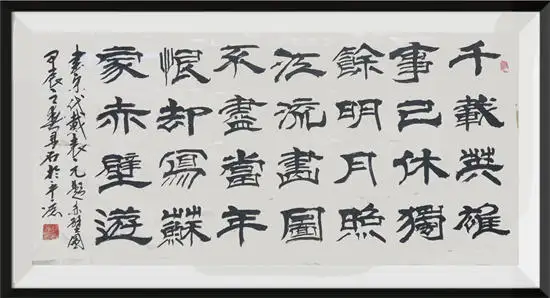 千載英雄
事已休獨
餘明月照
江流畫圖
不盡當年
恨却寫蘇
家赤壁遊
書宋代戴表元題赤壁圖
甲辰春石於平凉